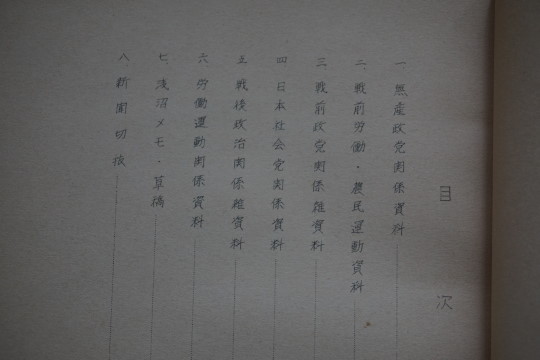 目次
一 無産政党関係資料
二 戦前労働・農民運動資料
三 戦前政党関係雑資料
四 日本社会党関係資料
五 戦後政治関係雑資料
六 労働運動関係資料
七 浅沼メモ・草稿
八 新聞切抜